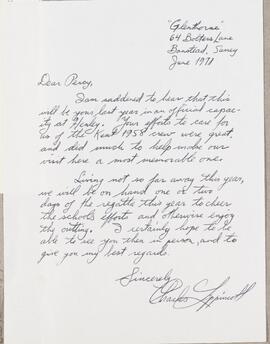 "Glenthorne"
64 Bolters Lane
Banstead, Surrey
June 1971
Dear Percy,
I am saddened to hear that this
will be your last year in an official capac-
ity at Henley. Your efforts to care for
us of the Kent 1958 crew were great,
and did much to help make our
visit here a most memorable one.
Living not so far away this year,
we will be on hand one or two
days of the regatta this year to cheer
the schools efforts and otherwise enjoy
the outing. I certainly hope to be
able to see you then in person, and to
give you my best regards.
Sincerely
Charles Lippincott